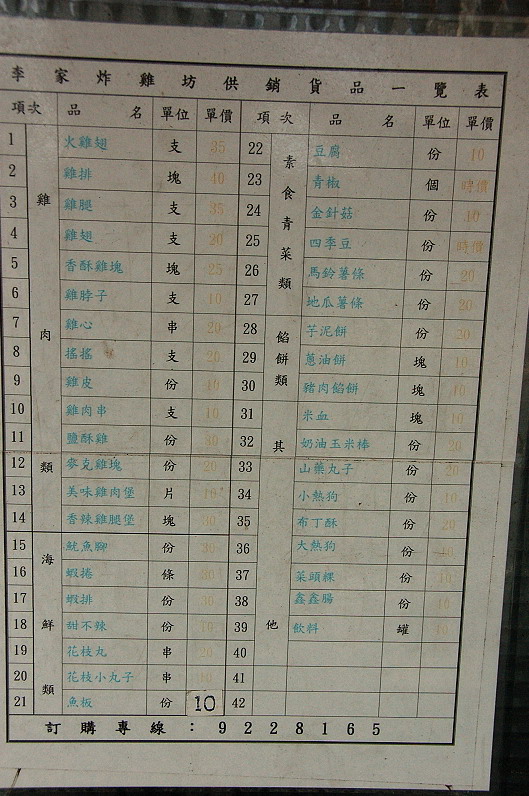 李家炸雞坊供銷貨品一覽表
項次 品名 單位 單價 項次 品名 單位 單價
雞肉類
1 火雞翅 支 35
2 雞排 塊 40
3 雞腿 支 35
4 雞翅 支 20
5 香酥雞塊 塊 25
6 雞脖子 支 10
7 雞心 串 20
8 搖搖 支 20
9 雞皮 份 10
10 雞肉串 支 10
11 鹽酥雞 份
12 麥克雞塊 份 20
13 美味雞肉堡 片
14 香辣雞腿堡 塊 30
海鮮類
15 魷魚腳 份 30
16 蝦捲 條
17 蝦排 份
18 甜不辣 份 10
19 花枝丸 串 20
20 花枝小丸子 串
21 魚板 份 10
素食青菜類
22 豆腐 份 10
23 青椒 個 時價
24 金針菇 份 10
25 四季豆 份 時價
26 馬鈴薯條 份 20
27 地瓜薯條 份 20
餡餅類
28 芋泥餅 份 20
29 蔥油餅 塊 10
30 豬肉餡餅 塊 10
31 米血 塊 10
其他
32 奶油玉米棒 份 20
33 山藥丸子 份 20
34 小熱狗 份 10
35 布丁酥 份 20
36 大熱狗 份 10
37 菜頭粿 份 10
38 鑫鑫腸 份 10
39 飲料 罐
40
41
42
訂購專線：9228165